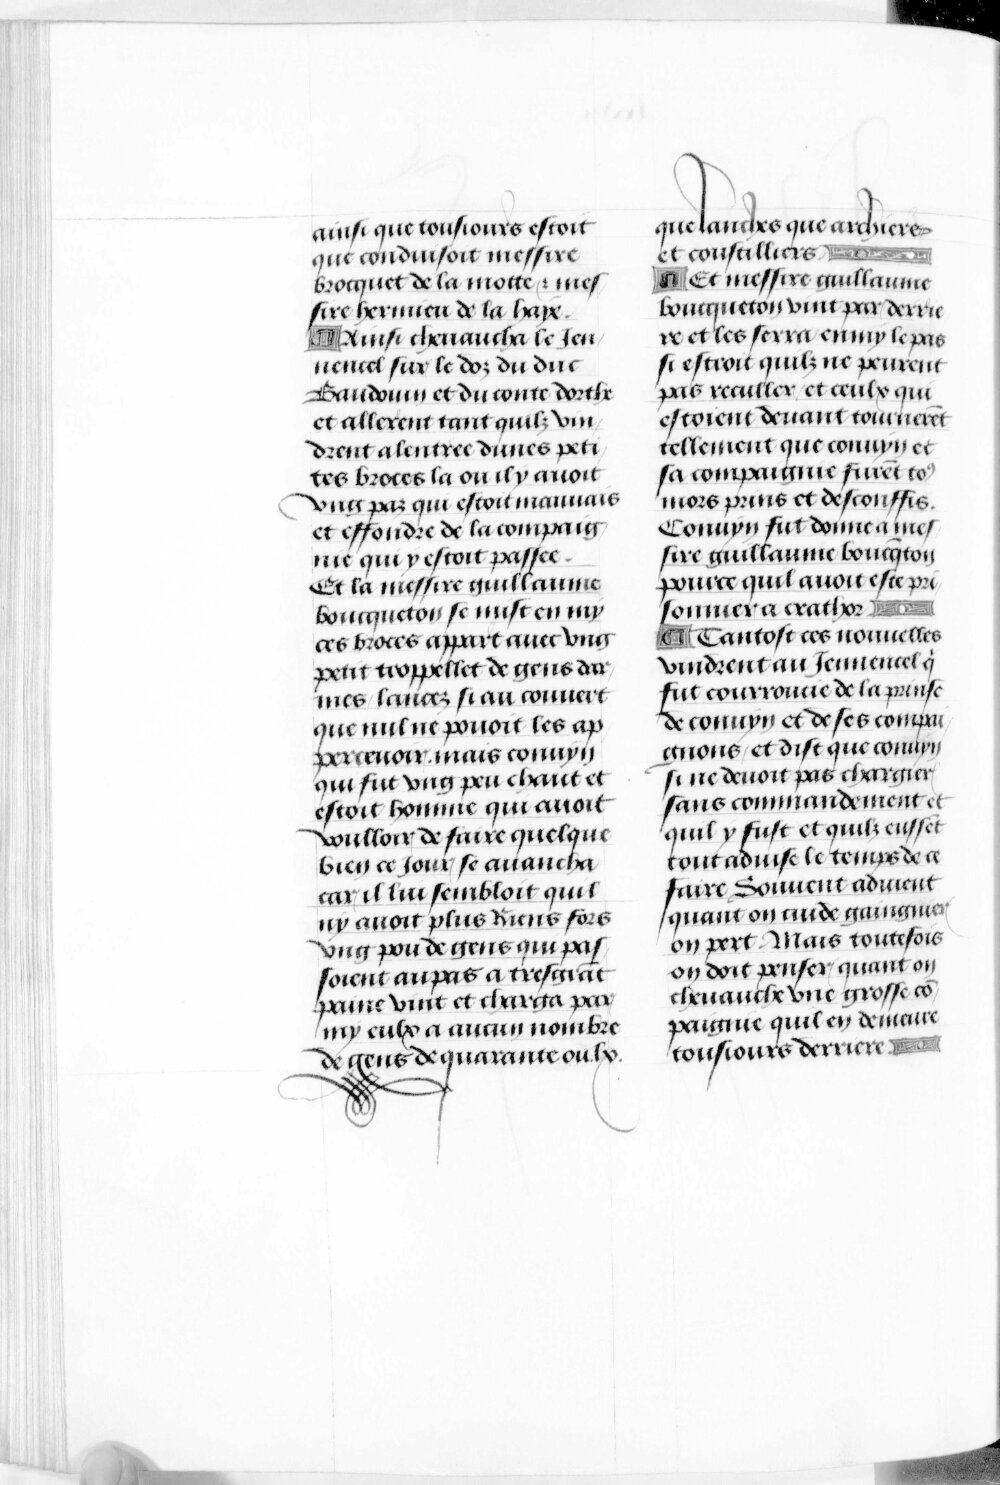 ainsi que tousiours estoit
que conduisoit messire
brocquet de la motte & mes
sire hermieu de la haye.
Ainsi cheuaucha le Jen
nencel sur le doz du duc
Baudouin et du conte dorthe
et allerent tant quilz vin
drent a lentree dunes peti
tes broces la ou il y auoit
vng paz qui estoit mauuais
et effondre de la compaig
nie qui y estoit passee.
Et la messire guillaume
boucqueton se mist en my
ces broces appart auec vng
petit troppellet de gens dar
mes / lancez si au couuert
que nul ne pouoit les ap
perceuoir. mais couuyn
qui fut vng peu chault et
estoit homme qui auoit
voulloir de faire quelque
bien ce Jour / se auancha
car il lui sembloit quil
ny auoit plus Riens fors
vng pou de gens qui pas
soient au pas a tresgrāt
paine vint et charga par
my eulx a aucun nombre
de gens de quarante ou lx.
que lanches que archiers
et coustilliers
Et messire guillaume
boucqueton vint par derrie
re et les serra en my le pas
si estroit quilz ne peurent
pas reculler / et ceulx qui
estoient deuant tournerēt
tellement que couuyn et
sa compaignie furēt to9
mors prins et desconffis.
Couuyn fut donne a mes
sire guillaume boucq̄ton
pource quil auoit este pri
sonnier a crathor
Tantost ces nouuelles
vindrent au Jennencel q̄
fut courroucie de la prinse
de couuyn et de ses compai
gnons / et dist que couuyn
si ne deuoit pas chargier
sans commandement et
quil y fust et quilz eussēt
tout aduise le temps de ce
faire Souuent aduient
quant on cuide gaingnier
on pert. Mais toutefois
on doit penser / quant on
cheuauche vne grosse cō
paignie quil en demeure
tousiours derriere